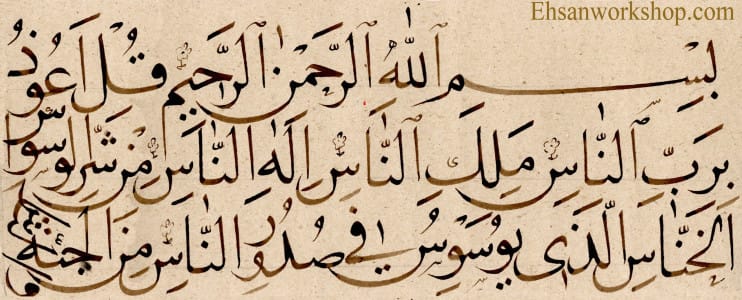 Ehsanworkshop.com
بِسْمِ اللهِ الرَّحْمٰنِ الرَّحِيمِ قُلْ اَعُوذُ
بِرَبِّ النَّاسِ مَلِكِ النَّاسِ اِلٰهِ النَّاسِ مِنْ شَرِّ الْوَسْوَاسِ
الْخَنَّاسِ الَّذِى يُوَسْوِسُ فِى صُدُورِ النَّاسِ مِنَ الْجِنَّةِ